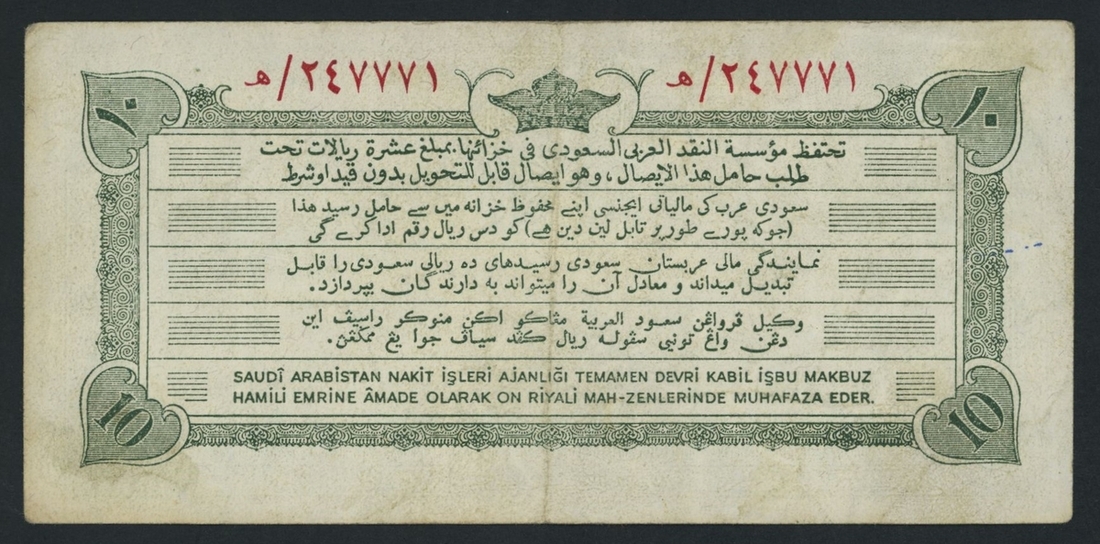 ٢٤٧٧٧١/ھ ٢٤٧٧٧١/ھ
١٠ ١٠
تحتفظ مؤسسة النقد العربى السعودى فى خزائنها. بمبلغ عشرة ريالات تحت
طلب حامل هذا الايصال، وهو ايصال قابل للتحويل بدون قيد اوشرط
سعودی عرب کی مالیاتی ایجنسی اپنے محفوظ خزانه میں سے حامل رسید هذا
(جوکه پورے طور پر قابل لین دین هے) کو دس ریال رقم ادا کرے گی
نمایندگی مالی عربستان سعودی رسیدهای ده ریالی سعودی را قابل
تبدیل میداند و معادل آن را میتواند به دارندگان بپردازد.
وكيل سعود العربية اکن منوکر راسيف اين
دڠن واڠ تونی سڤوله ريال کفد سياڤ جوا يڠ
SAUDÎ ARABİSTAN NAKİT İŞLERİ AJANLIĞI TEMAMEN DEVRİ KABİL İŞBU MAKBUZ
HAMİLİ EMRİNE ÂMADE OLARAK ON RİYALİ MAH-ZENLERİNDE MUHAFAZA EDER.
10 10